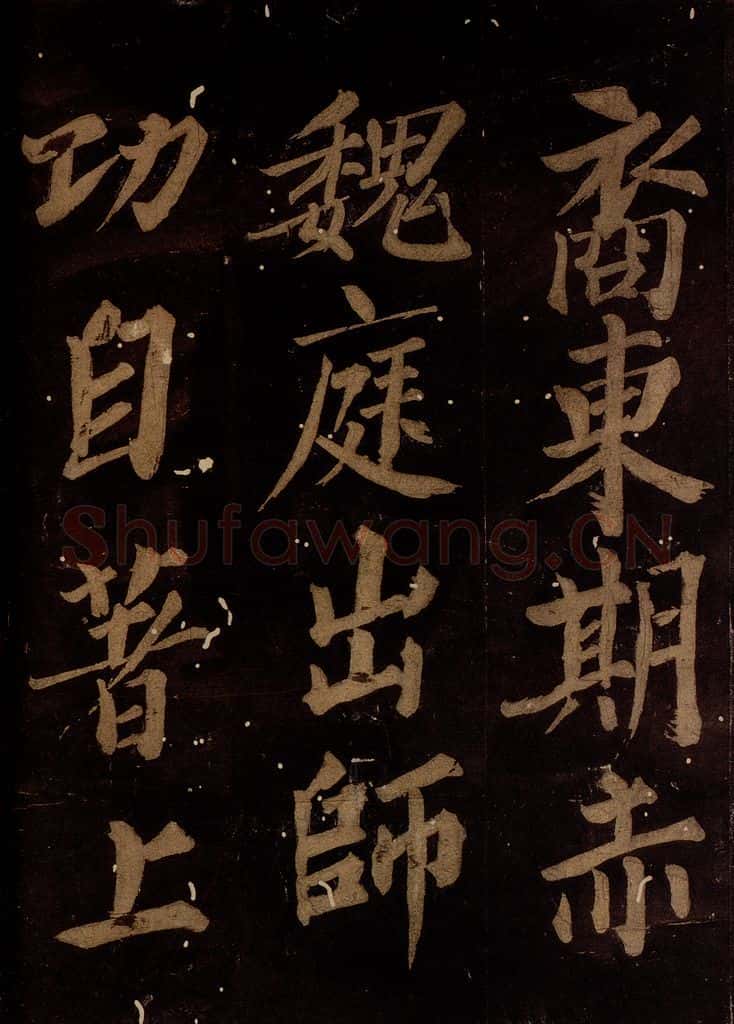 裔東期赤
魏庭出師
功自著上
Shufawang.CN